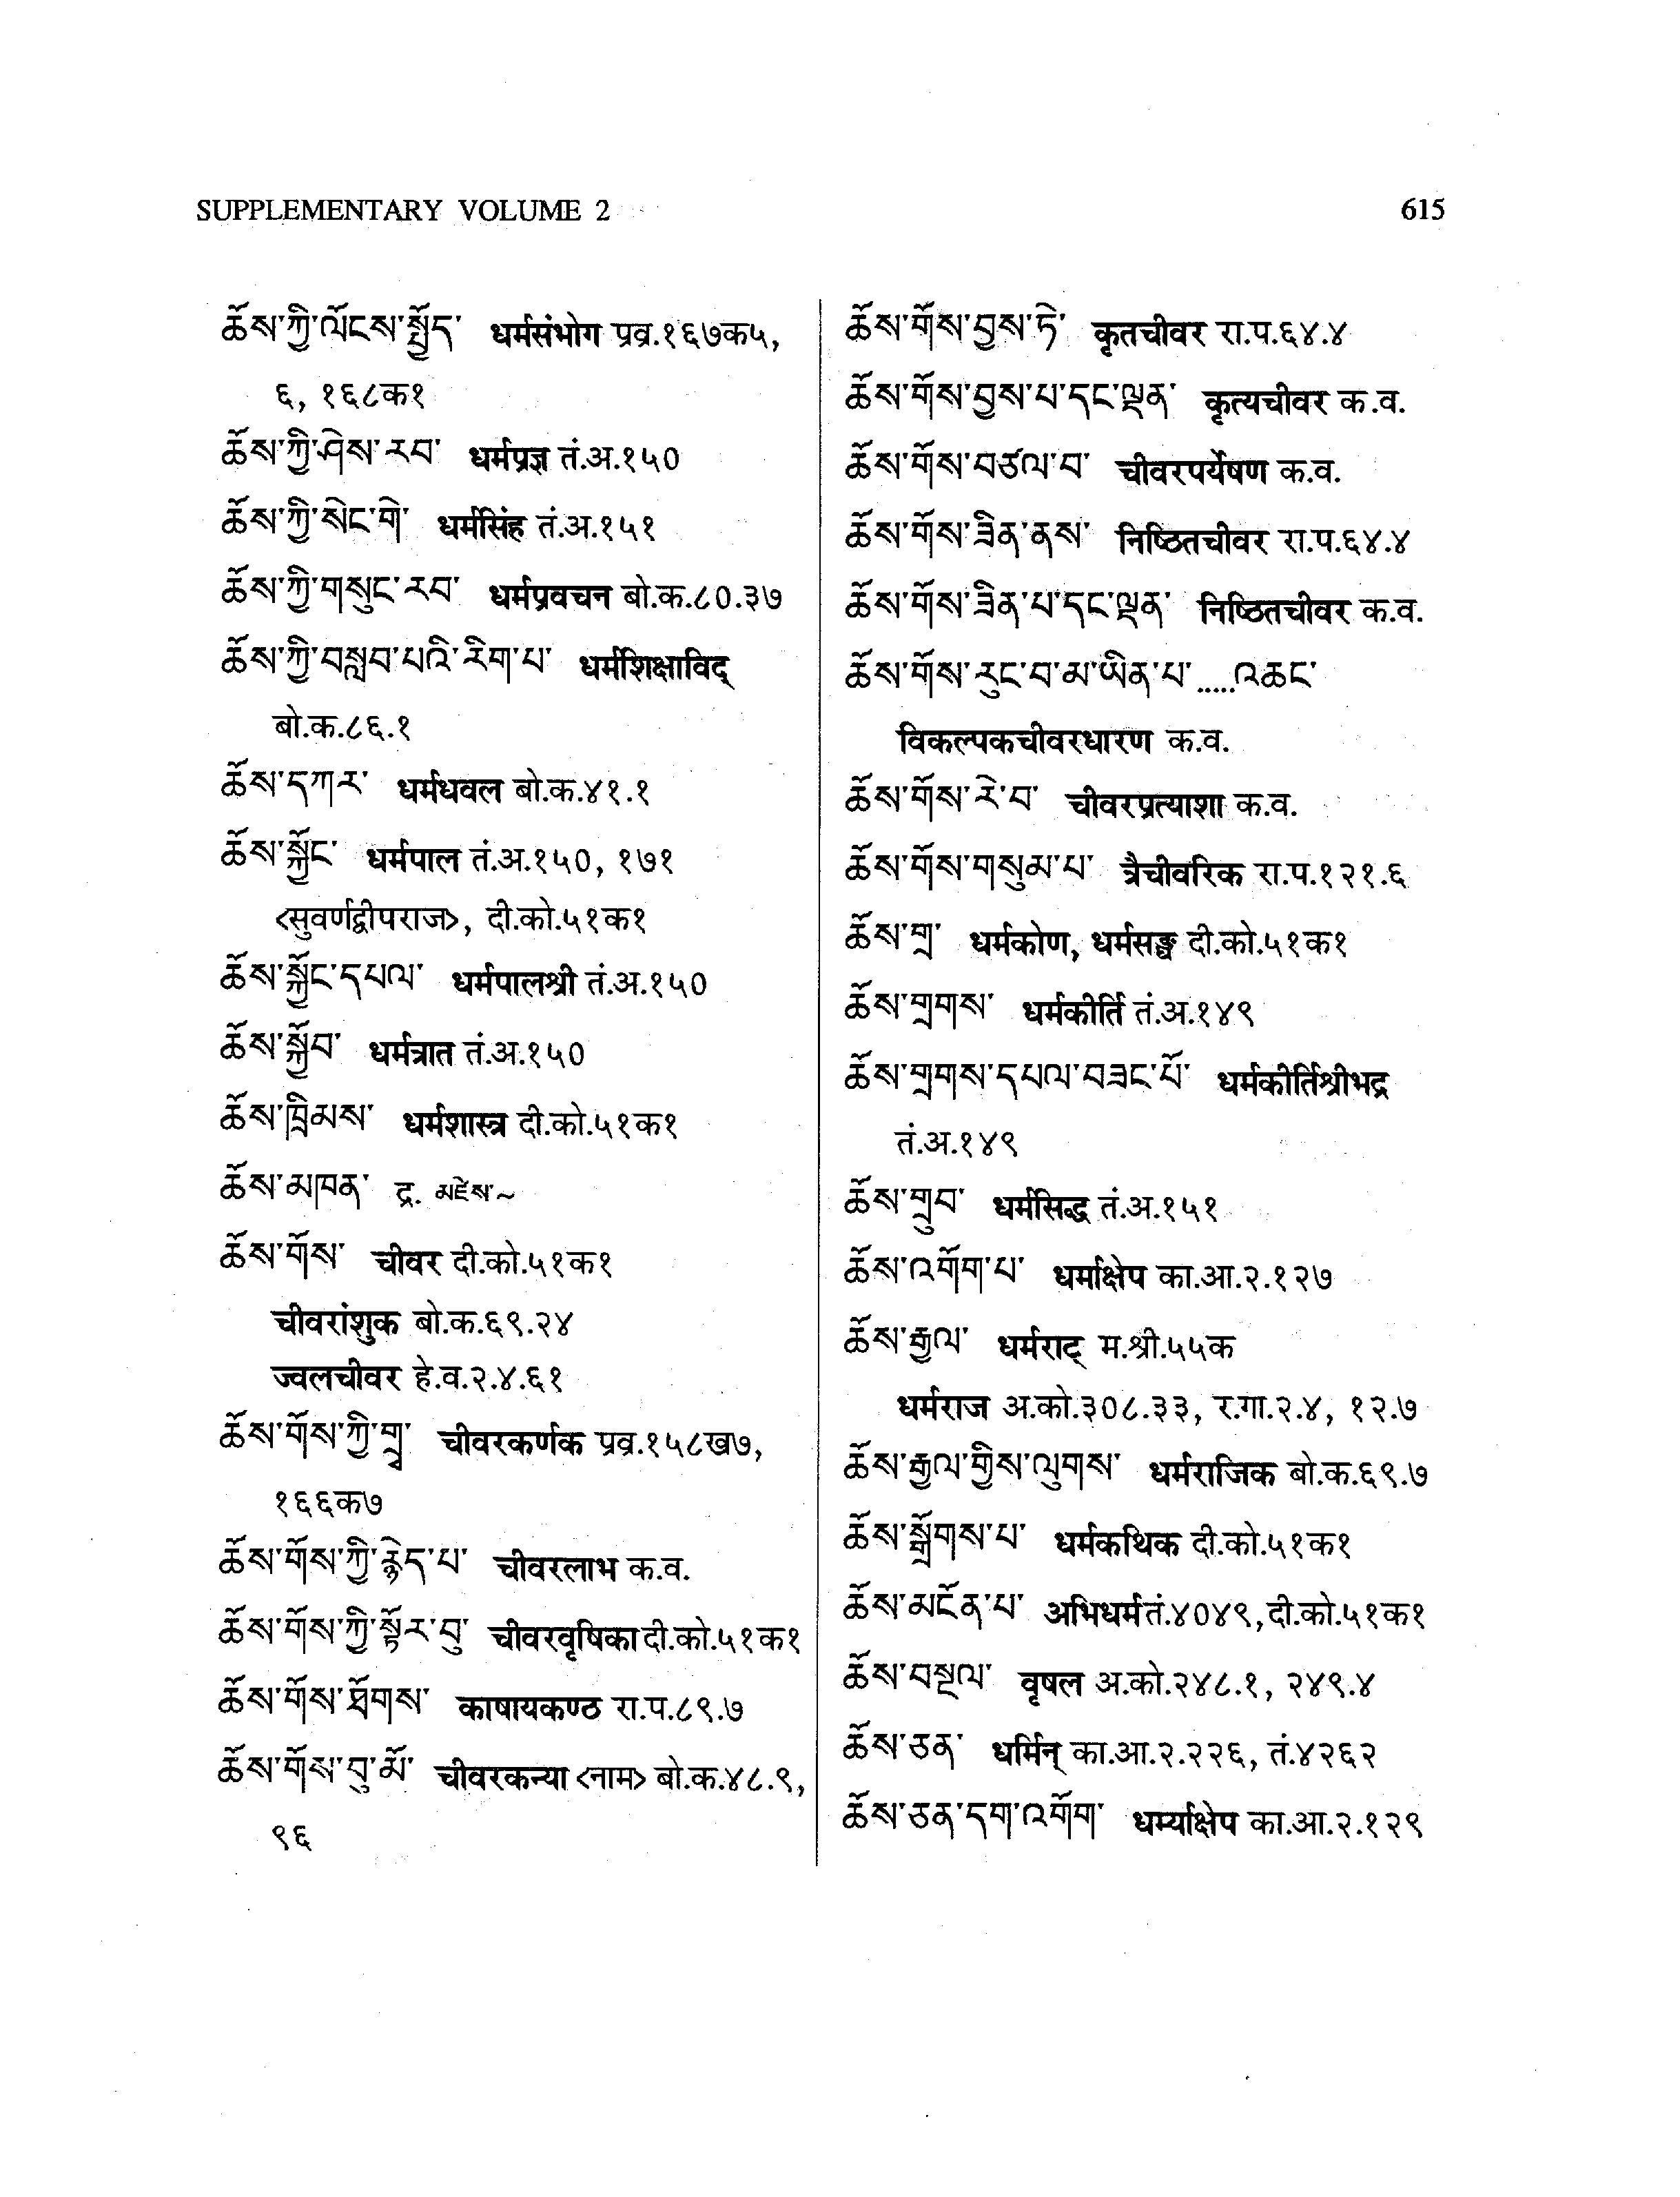 SUPPLEMENTARY VOLUME 2 615
ཆོས་ཀྱི་ལོངས་སྤྱོད་ धर्मसंभोग प्रव्र.१६७क५,
६, १६८क१
ཆོས་ཀྱི་ཤེས་རབ་ धर्मप्रज्ञ तं.अ.१५०
ཆོས་ཀྱི་སེང་གེ་ धर्मसिंह तं.अ.१५१
ཆོས་ཀྱི་གསུང་རབ་ धर्मप्रवचन बो.क.८०.३७
ཆོས་ཀྱི་བསླབ་པའི་རིག་པ་ धर्मशिक्षाविद्
बो.क.८६.१
ཆོས་དཀར་ धर्मधवल बो.क.४१.१
ཆོས་སྐྱོང་ धर्मपाल तं.अ.१५०, १७१
<सुवर्णद्वीपराज>, दी.को.५१क१
ཆོས་སྐྱོང་དཔལ་ धर्मपालश्री तं.अ.१५०
ཆོས་སྐྱོབ་ धर्मत्रात तं.अ.१५०
ཆོས་ཁྲིམས་ धर्मशास्त्र दी.को.५१क१
ཆོས་མཁན་ द्र. མཛེས་~
ཆོས་གོས་ चीवर दी.को.५१क१
चीवरांशुक बो.क.६९.२४
ज्वलचीवर हे.व.२.४.६१
ཆོས་གོས་ཀྱི་གྲྭ་ चीवरकर्णक प्रव्र.१५८ख७,
१६६क७
ཆོས་གོས་ཀྱི་རྙེད་པ་ चीवरलाभ क.व.
ཆོས་གོས་ཀྱི་སྟོར་བུ་ चीवरवृषिका दी.को.५१क१
ཆོས་གོས་ཐོགས་ काषायकण्ठ रा.प.८९.७
ཆོས་གོས་བུ་མོ་ चीवरकन्या <नाम> बो.क.४८.९,
९६
ཆོས་གོས་བྱས་ཏེ་ कृतचीवर रा.प.६४.४
ཆོས་གོས་བྱས་པ་དང་ལྡན་ कृत्यचीवर क.व.
ཆོས་གོས་བཙལ་བ་ चीवरपर्येषण क.व.
ཆོས་གོས་ཟིན་ནས་ निष्ठितचीवर रा.प.६४.४
ཆོས་གོས་ཟིན་པ་དང་ལྡན་ निष्ठितचीवर क.व.
ཆོས་གོས་རུང་བ་མ་ཡིན་པ་.....འཆང་
विकल्पकचीवरधारण क.व.
ཆོས་གོས་རེ་བ་ चीवरप्रत्याशा क.व.
ཆོས་གོས་གསུམ་པ་ त्रैचीवरिक रा.प.१२१.६
ཆོས་གྲ་ धर्मकोण, धर्मसङ्घ दी.को.५१क१
ཆོས་གྲགས་ धर्मकीर्ति तं.अ.१४९
ཆོས་གྲགས་དཔལ་བཟང་པོ་ धर्मकीर्तिश्रीभद्र
तं.अ.१४९
ཆོས་གྲུབ་ धर्मसिद्ध तं.अ.१५१
ཆོས་འགོག་པ་ धर्माक्षेप का.आ.२.१२७
ཆོས་རྒྱལ་ धर्मराट् म.श्री.५५क
धर्मराज अ.को.३०८.३३, र.गा.२.४, १२.७
ཆོས་རྒྱལ་གྱིས་ལུགས་ धर्मराजिक बो.क.६९.७
ཆོས་སྒྲོགས་པ་ धर्मकथिक दी.को.५१क१
ཆོས་མངོན་པ་ अभिधर्म तं.४०४९, दी.को.५१क१
ཆོས་བསྔལ་ वृषल अ.को.२४८.१, २४९.४
ཆོས་ཅན་ धर्मिन् का.आ.२.२२६, तं.४२६२
ཆོས་ཅན་དག་འགོག་ धर्म्याक्षेप का.आ.२.१२९